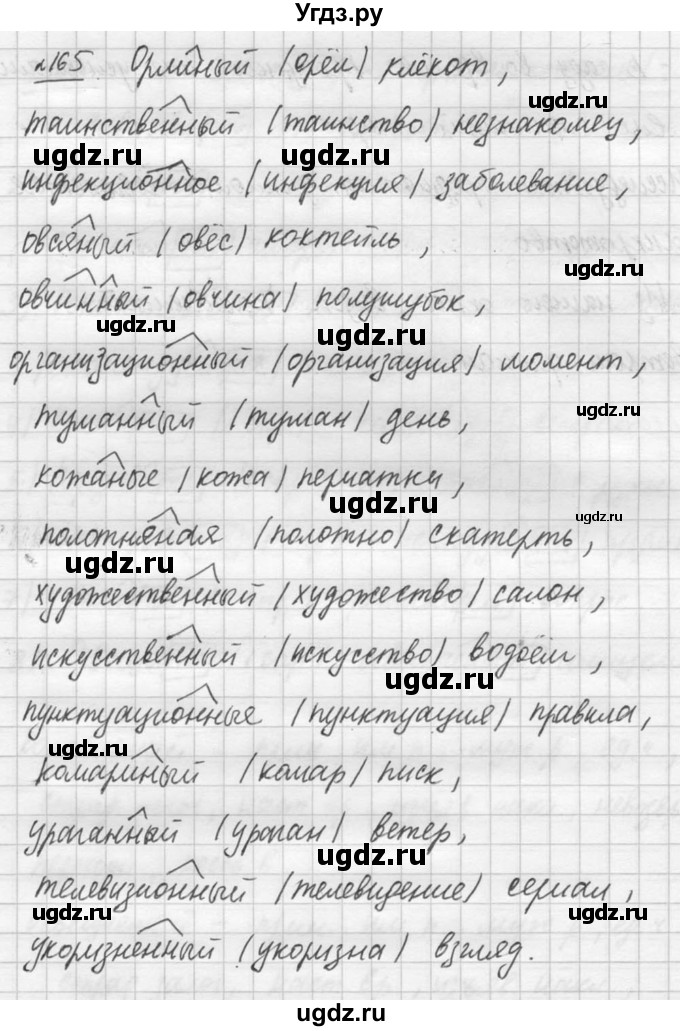 Угдз.ру
№165 Орлиный (орёл) клёкот,
ugdz.ru ugdz.ru
таинственный (таинство) незнакомец,
ugdz.ru ugdz.ru
инфекционное (инфекция) заболевание,
овсяный (овёс) коктейль,
ugdz.ru
овчинный (овчина) полушубок,
ugdz.ru ugdz.ru
организационный (организация) момент,
туманный (туман) день,
ugdz.ru
кожаные (кожа) перчатки,
ugdz.ru
полотняная (полотно) скатерть,
ugdz.ru ugdz.ru
художественный (художество) салон,
ugdz.ru
искусственный (искусство) водоём,
ugdz.ru
пунктуационные (пунктуация) правила,
ugdz.ru
комариный (комар) писк,
ураганный (ураган) ветер,
ugdz.ru
телевизионный (телевидение) сериал,
ugdz.ru ugdz.ru
укоризненный (укоризна) взгляд.
ugdz.ru